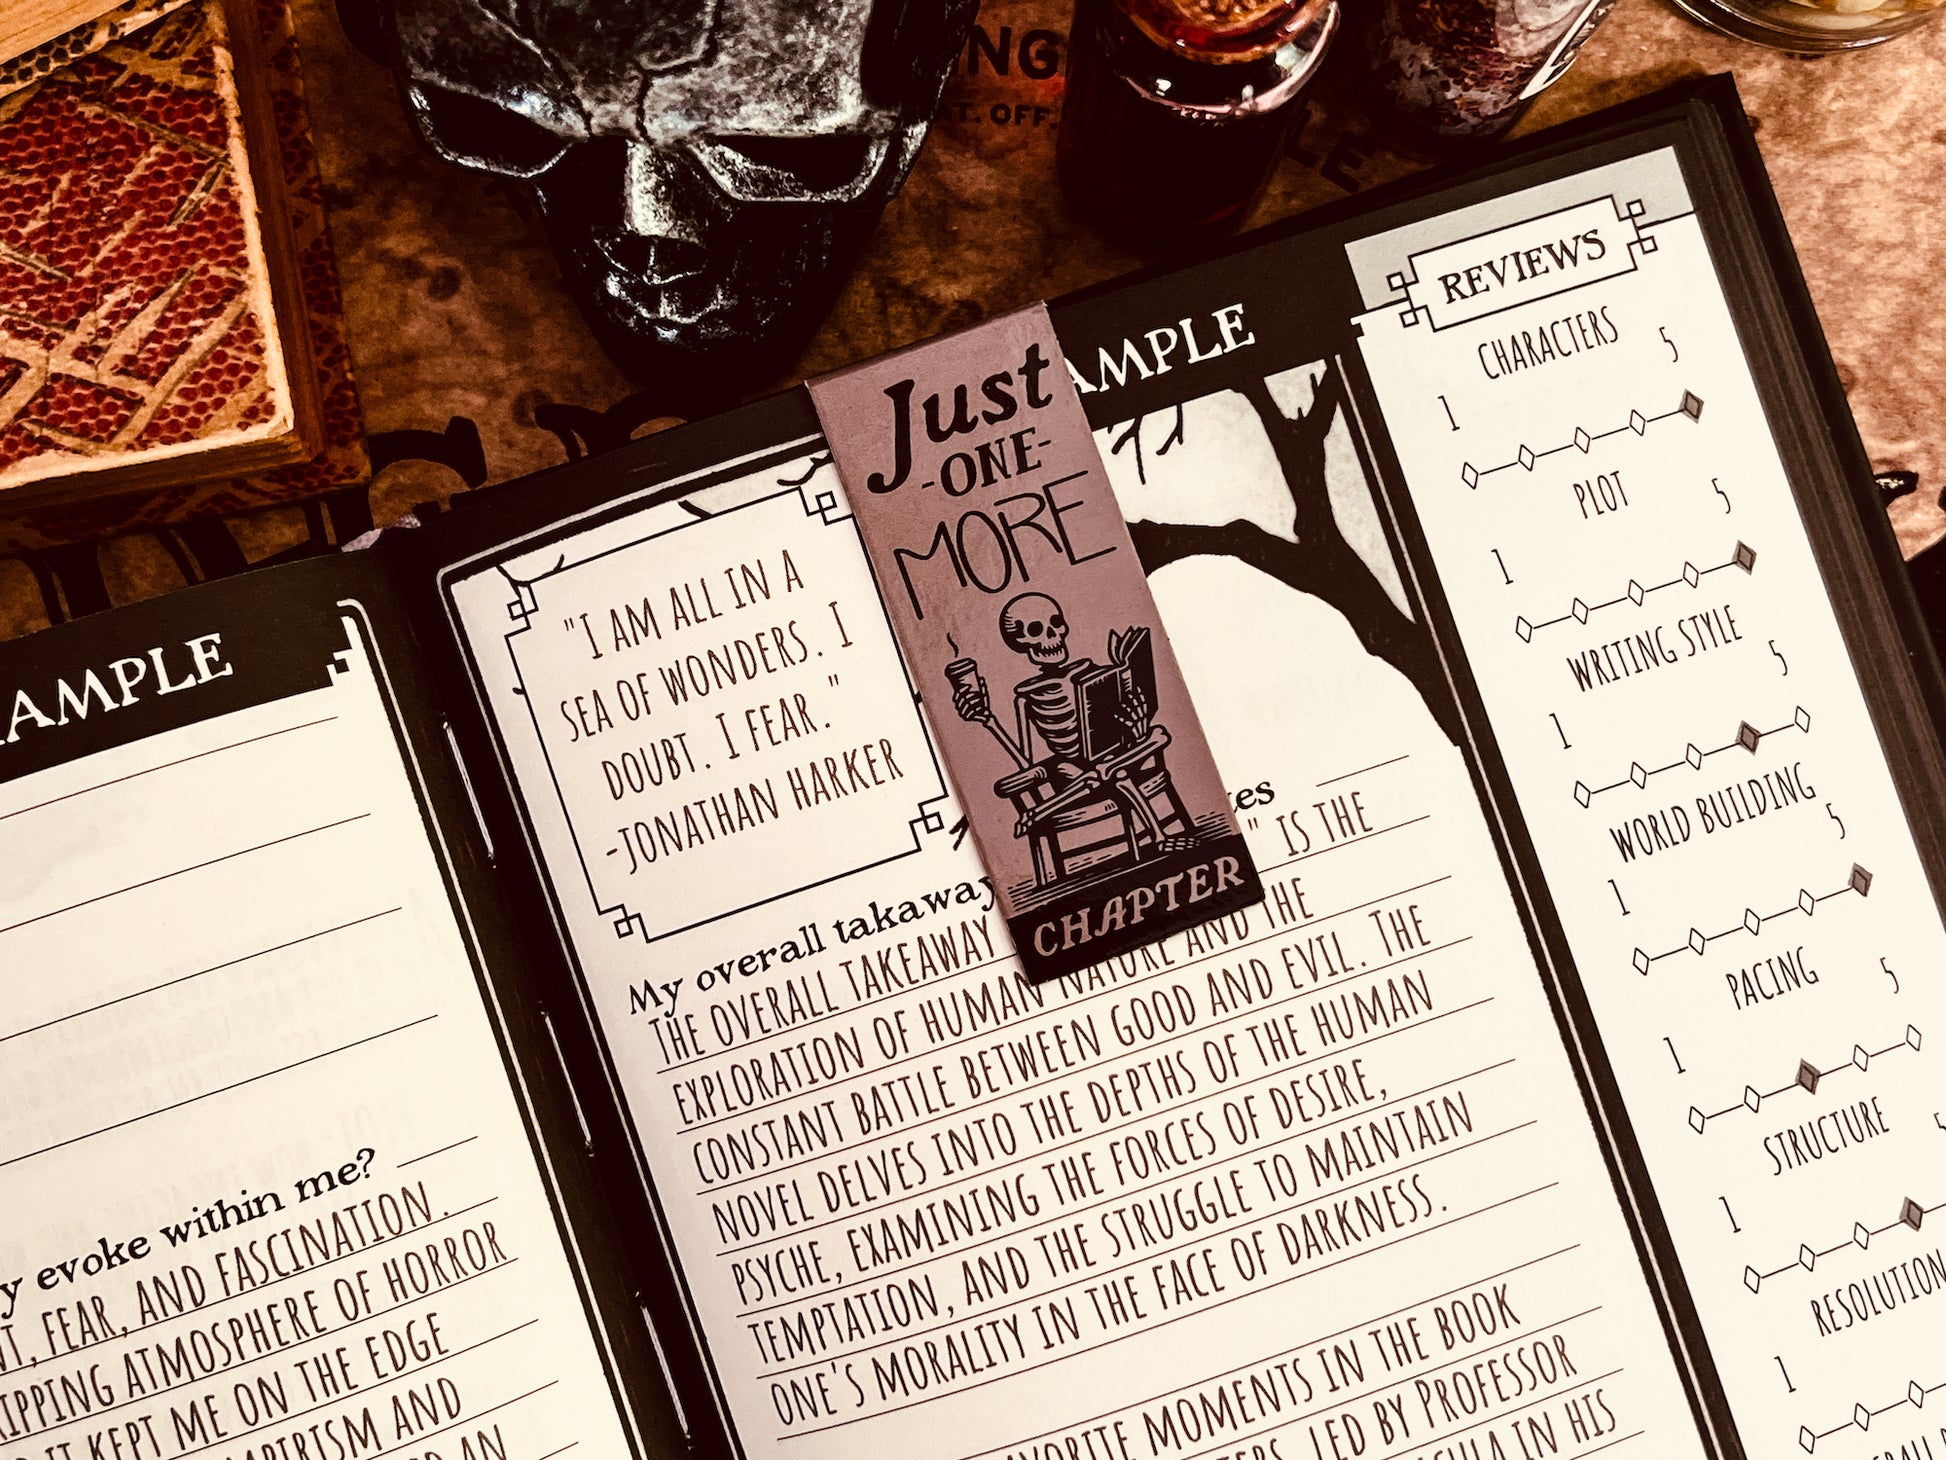 NG
T. OFF.
LE
AMPLE
y evoke within me?
T, FEAR, AND FASCINATION.
IPPING ATMOSPHERE OF HORROR
IT KEPT ME ON THE EDGE
MPIRISM AND
AN
AMPLE
"I AM ALL IN A
SEA OF WONDERS. I
DOUBT. I FEAR."
-JONATHAN HARKER
Just
-ONE-
MORE
CHAPTER
My overall takaway
es
THE OVERALL TAKEAWAY " IS THE
EXPLORATION OF HUMAN NATURE AND THE
CONSTANT BATTLE BETWEEN GOOD AND EVIL. THE
NOVEL DELVES INTO THE DEPTHS OF THE HUMAN
PSYCHE, EXAMINING THE FORCES OF DESIRE,
TEMPTATION, AND THE STRUGGLE TO MAINTAIN
ONE'S MORALITY IN THE FACE OF DARKNESS.
AVORITE MOMENTS IN THE BOOK
TERS, LED BY PROFESSOR
CULA IN HIS
REVIEWS
CHARACTERS
1 5
PLOT
1 5
WRITING STYLE
1 5
WORLD BUILDING
1 5
PACING
1 5
STRUCTURE
1 5
RESOLUTION
1